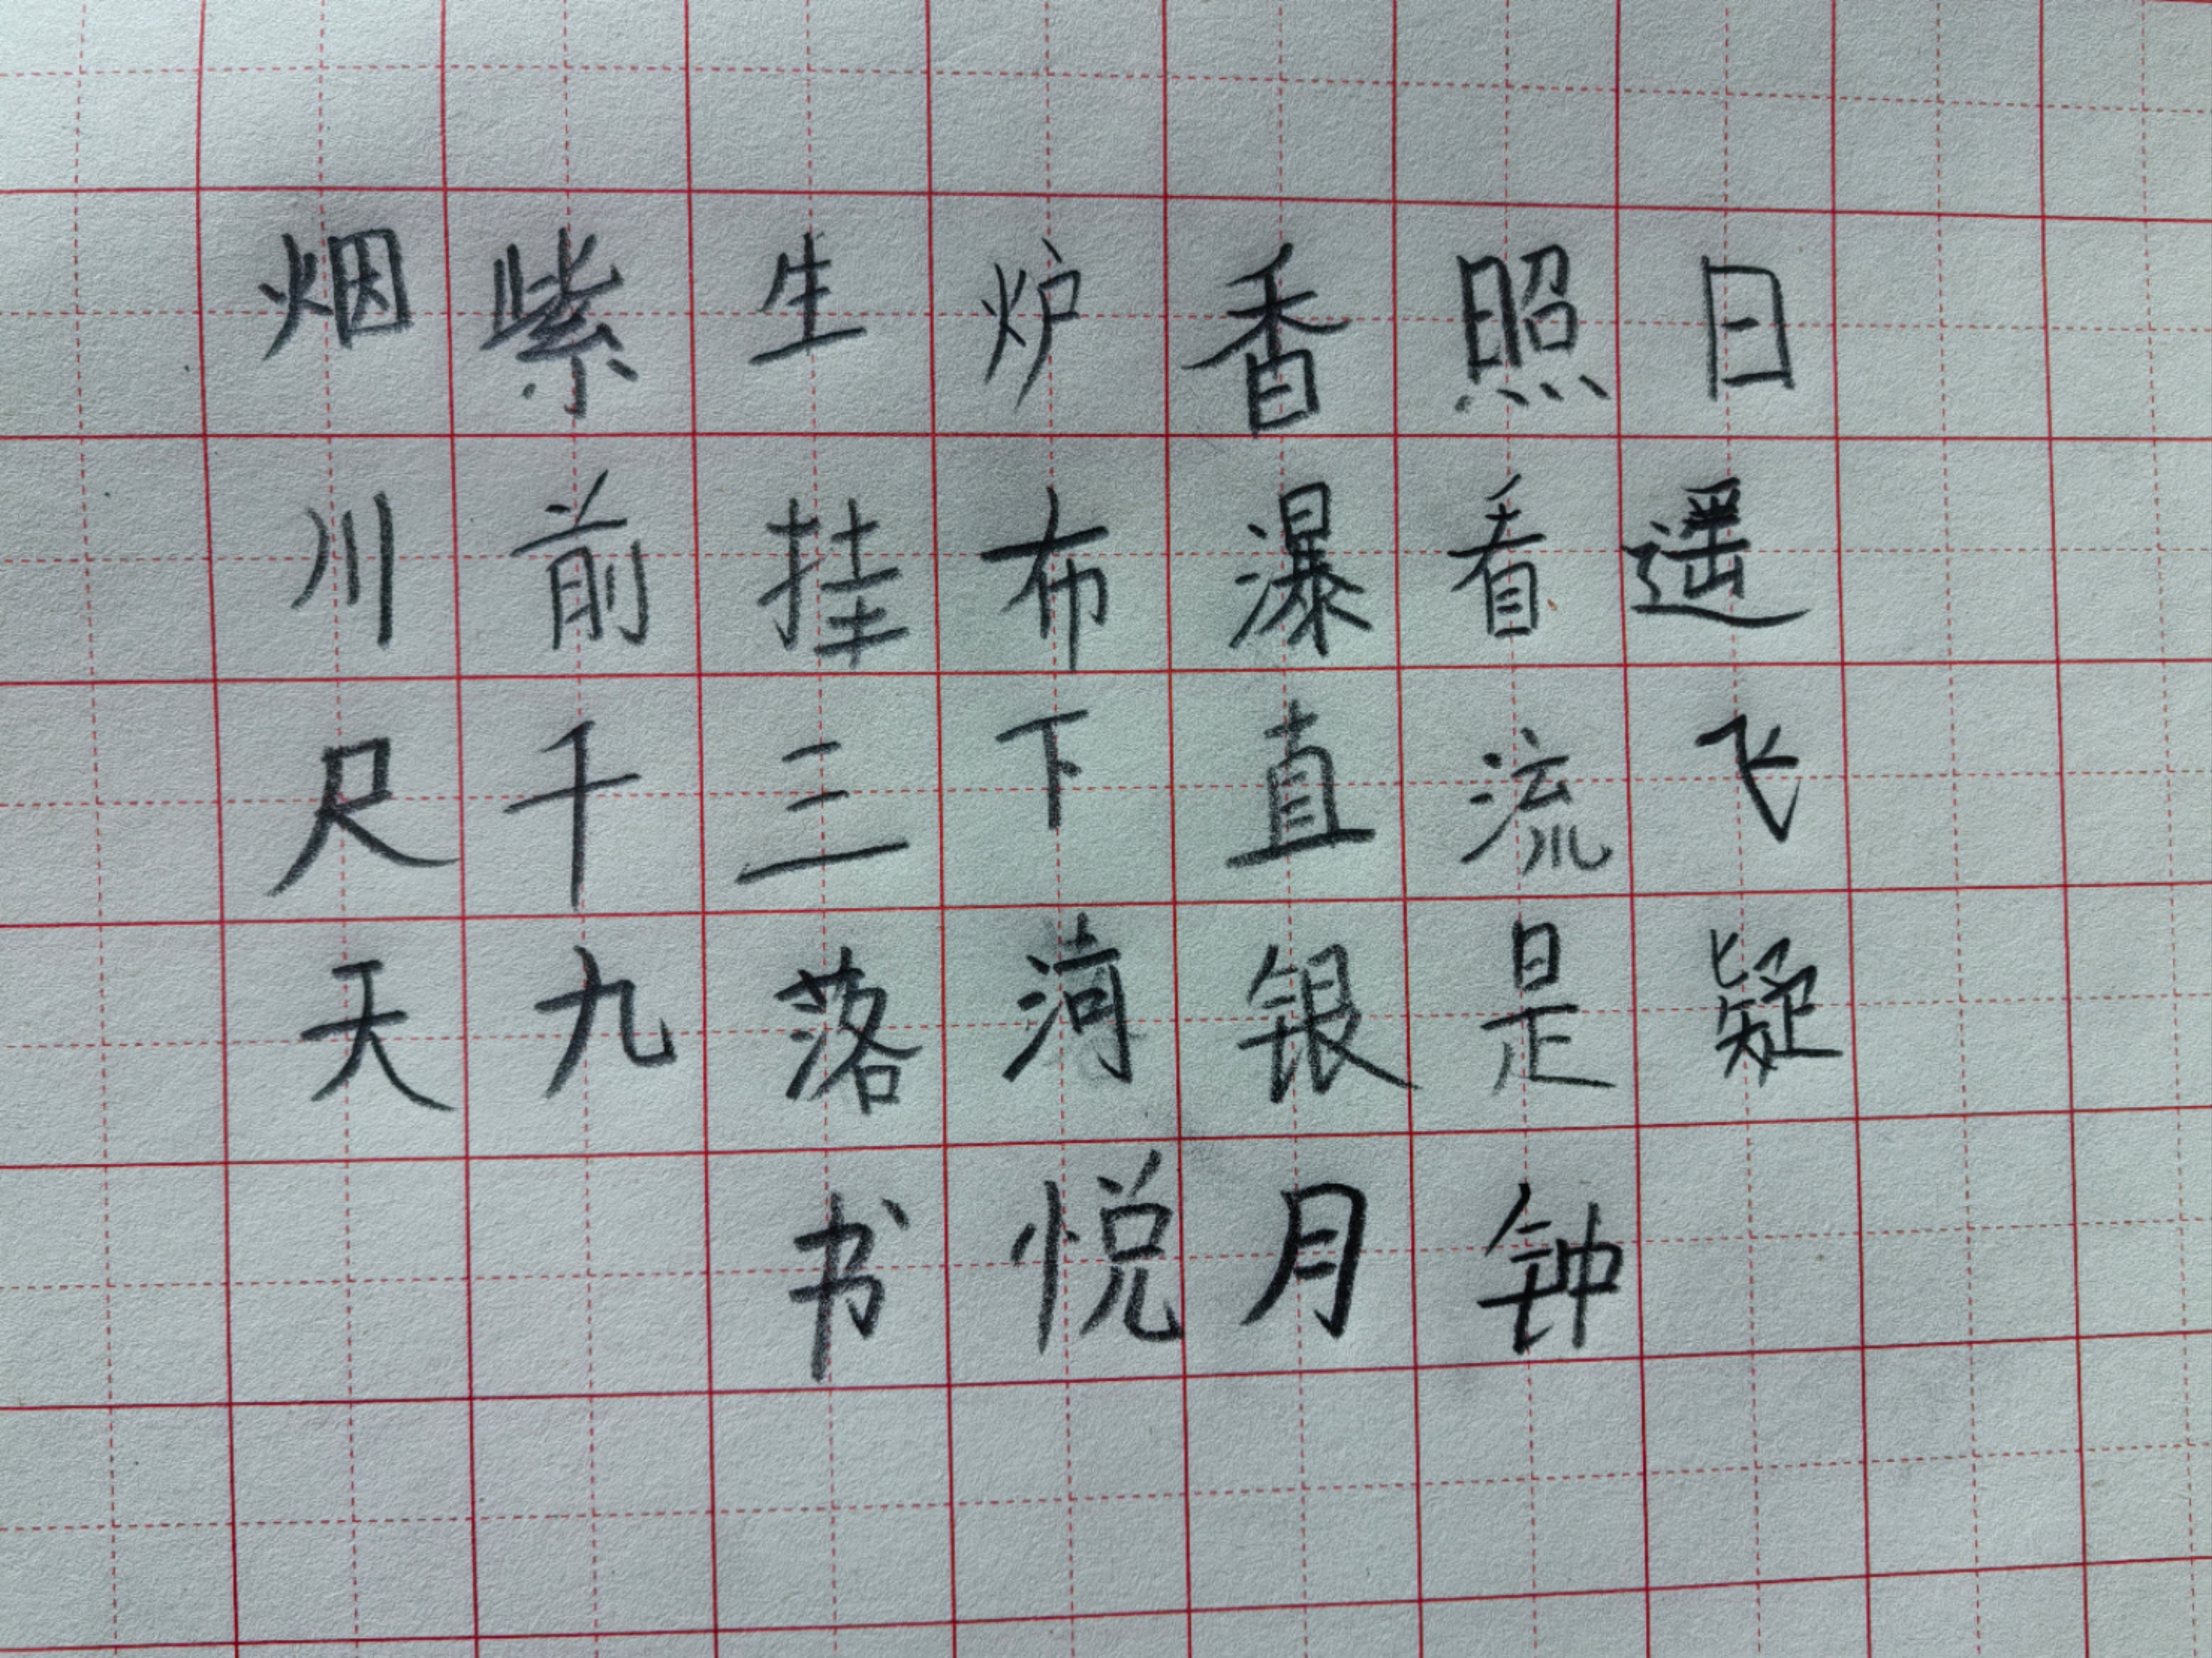 日照香炉生紫烟
遥看瀑布挂前川
飞流直下三千尺
疑是银河落九天
钟月悦书